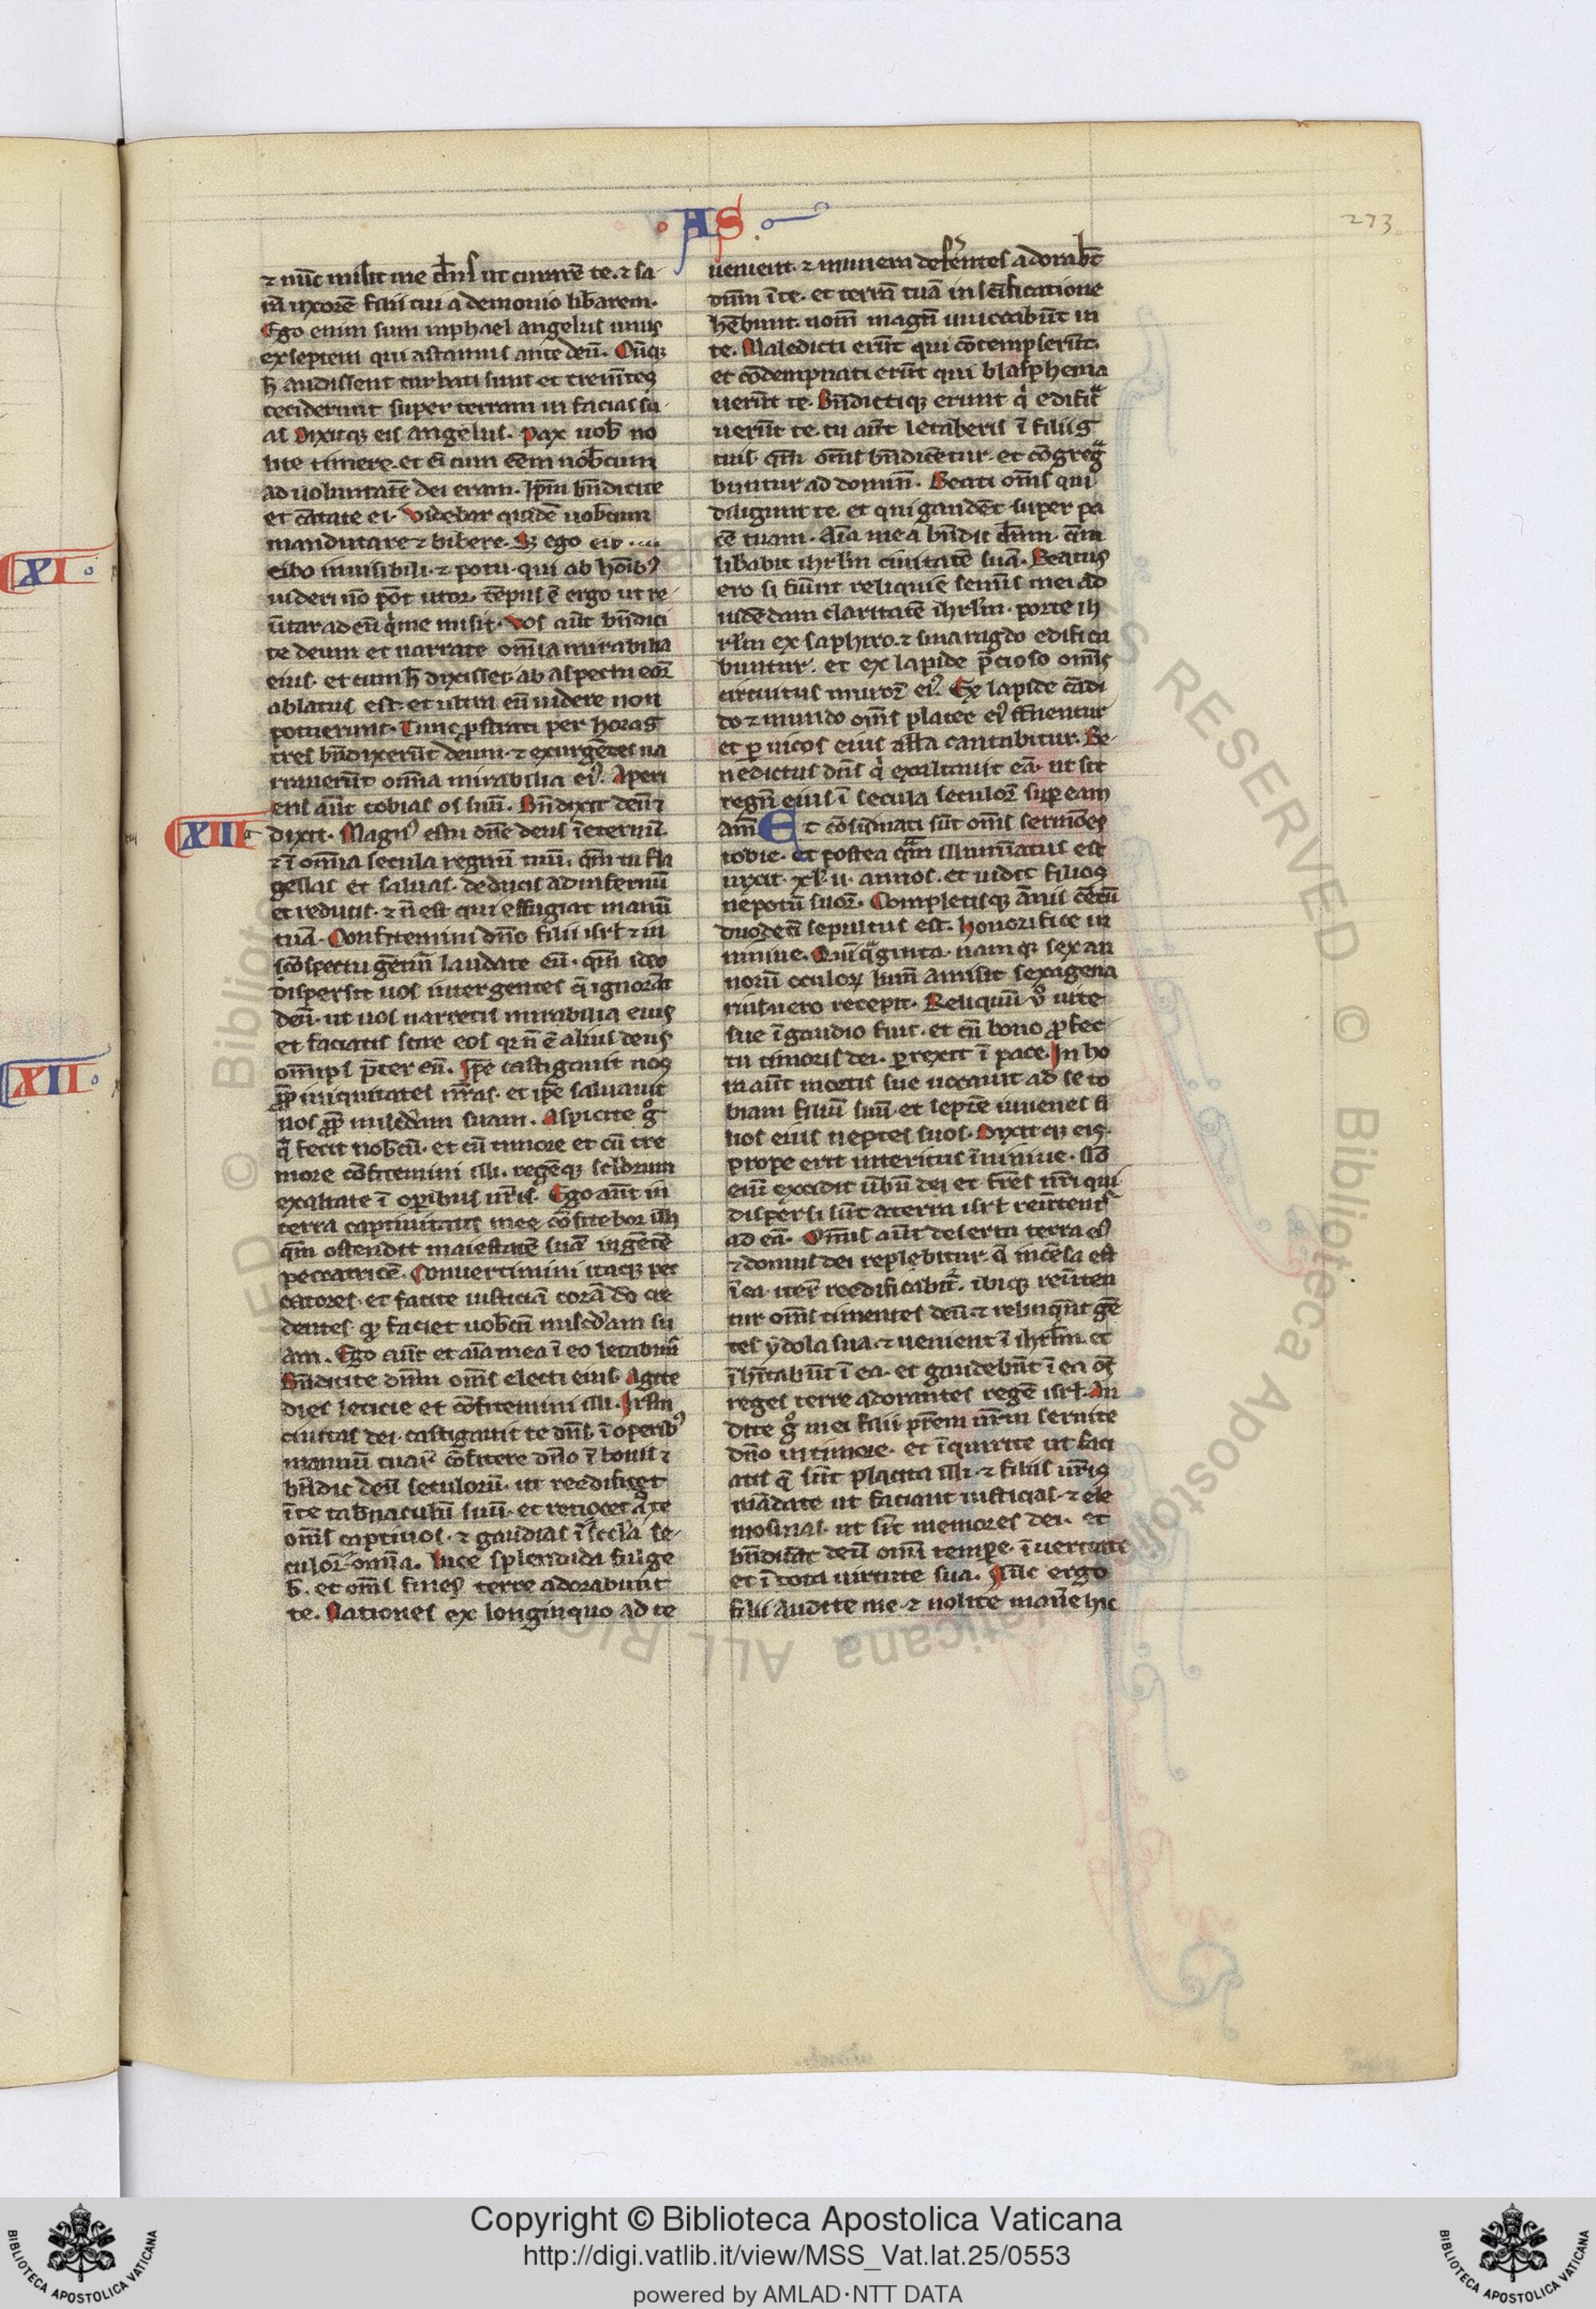 · AS ·
273
⁊ nūc misit me dn̄s ut curarē te. ⁊ sa
rā uxorē filii tui a demonio lib̄arem.
Ego enim sum raphael angelus unus
ex septem qui astamus ante deū. Cūqꝫ
h̄ audissent turbati sunt et trem̄tes
ceciderunt super terram in facias su
as Dixitqꝫ eis angelus. Pax uob̄ no
lite timere. et eī cum eēm uob̄cum
ad uoluntatē dei eram. Ip̄m bn̄dicite
et cātate ei. Videbar quidē uob̄cum
manducare ⁊ bibere. Sꝫ ego
cibo inuisibili. ⁊ potu. qui ab hoīb⁹
uideri nō pōt utor. tēpus ē ergo ut re
ūtar ad eū q̇ me misit. Vos aūt bn̄dici
te deum et narrate om̄ia mirabilia
eius. et cum h̄ dixisset. ab aspectu eoꝝ
ablatus est. et ultra eū uidere non
potuerunt. Tunc ꝓstrati per horas
tres bn̄dixerūt deum. ⁊ exurgētes na
rrauerūt om̄ia mirabilia ei⁹. Aperi
ens aūt tobias os suū. Bn̄dixit deū ⁊
XIII
dixit. Magn⁹ es tu dn̄e deus ī eternū.
⁊ ī om̄ia secula regnū tuū. qm̄ tu fla
gellas et saluas. deducis ad infernū
et reducis. ⁊ n̄ est qui effugiat manū
tuā. Confitemini dn̄o filii isrl̄ ⁊ in
cōspectu gētiū laudate eū. qm̄ ideo
dispersit uos inter gentes q̄ ignorāt
deū. ut uos narretis mirabilia eius
et faciatis scire eos qꝛ n̄ ē alius deus
om̄ips p̄ter eū. Ip̄e castigauit nos
ꝓp̄ iniquitates nr̄as. et ip̄e saluauit
nos ꝓp̄ mis̄cdiam suam. Aspicite g̊
q̄ fecit nob̄cū. et cū timore et cū tre
more cōfitemini illi. regēqꝫ sclorum
exaltate ī oꝑibus ur̄is. Ego aūt in
terra captiuitatis mee cōfitebor illi
qm̄ ostendit maiestatē suā in gētē
peccatricē. Conuertimini itaqꝫ pec
catores. et facite iusticiā corā dō cre
dentes qꝙ faciet uob̄cū mis̄cdiam su
am. Ego aūt et aīa mea ī eo letabimur
Bn̄dicite dn̄m om̄s electi eius. Agite
dies leticie et cōfitemini illi. Irl̄m
ciuitas dei. castigauit te dn̄s. ī operib⁹
manuū tuaꝝ. cōfitere dn̄o ī bonis ⁊
bn̄dic deū seculorū. ut reedificet
ī te tab̄naculū suū. et reuocet a te
om̄s captiuos. ⁊ gaudias ī sec̄la se
culoꝝ om̄ia. Luce splendida fulge
b̄. et om̄s fines terre adorabunt
te. Nationes ex longinquo ad te
uenient. ⁊ munera defērentes adorabūt
dn̄m ī te. et terrā tuā in sc̄ificatione
hēbunt. nom̄ magn̄ inuocabūt in
te. Maledicti erūt qui cōtempserūt.
et cōdempnati erūt qui blasphema
uerūt te. Bn̄dictiqꝫ erunt q̇ edifica
uerūt te. tu aūt letaberis ī filiis
tuis. qm̄ om̄s bn̄dicētur. et cōgrega
buntur ad dominū. Beati om̄s qui
diligunt te. et qui gaudēt super pa
cē tuam. Aīa mea bn̄dic dn̄m. qm̄
lib̄abit ihrl̄m ciuitatē suā. Beatus
ero si fūint reliquie semīs mei ad
uidēdam claritatē ihrl̄m. porte ih
rl̄m ex saphiro. ⁊ smaragdo edifica
buntur. et ex lapide p̄cioso om̄s
circuitus muroꝝ ei⁹. Ex lapide cādi
do ⁊ mundo om̄s platee ei⁹ st̄nentur
et ꝑ uicos eius all̄a cantabitur. Be
nedictus dn̄s q̇ exaltauit eā. ut sit
regnū eius ī secula seculoꝝ suꝑ eam
am̄ Et cōsūmati sūt om̄s sermōes
tobie. et postea qm̄ illuminatus est
uixit. xl.ii. annos. et uidit filios
nepotū suoꝝ. Completisqꝫ ānis cētū
duodeci sepultus est. honorifice in
niniue. Quīq̄ginta. namqꝫ sex an
norū oculoꝝ lum̄ amisit sexagena
rius uero recepit. Reliquū ū̊ uite
sue ī gaudio fuit. et cū bono ꝓfec
tu timoris dei. ꝑrexit ī pace. In ho
ra aūt mortis sue uocauit ad se to
biam filiū suū. et septē iuuenes fi
lios eius nepotes suos. Dixitqꝫ eis.
prope erit interitus niniue. nō
enī excidit ūbū dei et frēs nr̄i qui
dispersi sūt a terra isrl̄ reūtent̄
ad eā. Om̄is aūt deserta terra ei⁹
⁊ domus dei replebitur. q̄ incēsa est
ī ea. iteꝝ reedificabit̄. ibiqꝫ reūten
tur om̄s timentes deū. ⁊ relinquēt gē
tes ydola sua. ⁊ uenient ī ihrl̄m. et
īhītabūt ī ea. et gaudebūt ī ea om̄s
reges terre adorantes regē isrl̄. Au
dite g̊ mei filii. prēm ur̄m seruite
dn̄o in timore. et īquirite ut faci
atis q̄ sūt placita illi. ⁊ filiis ur̄is
mādate ut faciant iusticias. ⁊ ele
mosinas. ut sīt memores dei. et
bn̄dicāt deū omī tempore. ī ueritate
et ī tota uirtute sua. Nūc ergo
filii audite me. ⁊ nolite manē hic
XI
XII
© Biblioteca Apostolica Vaticana ALL RIGHTS RESERVED
Copyright © Biblioteca Apostolica Vaticana
http://digi.vatlib.it/view/MSS_Vat.lat.25/0553
powered by AMLAD·NTT DATA
BIBLIOTECA APOSTOLICA VATICANA
BIBLIOTECA APOSTOLICA VATICANA